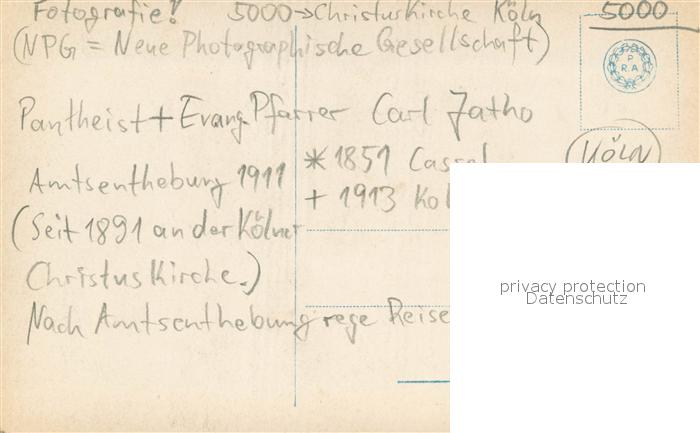 Fotografie! 5000→Christuskirche Köln 5000
(NPG = Neue Photographische Gesellschaft)
P
R A
Pantheist + Evang Pfarrer Carl Jatho
(KÖLN)
Amtsenthebung 1911
* 1851 Cassel
+ 1913 Köl
(Seit 1891 an der Kölner
Christuskirche.)
Nach Amtsenthebung rege Reise
privacy protection
Datenschutz